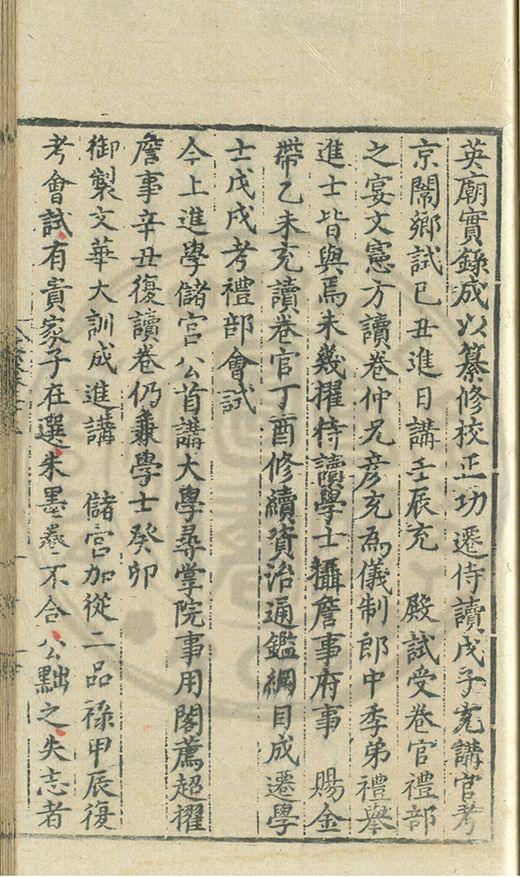 英廟實錄成以纂修校正功遷侍讀戊子充講官考
京闈鄉試己丑進日講壬辰充　殿試受卷官禮部
之宴文憲方讀卷仲兄彥充為儀制郎中季弟禮舉
進士皆與焉未幾擢侍讀學士攝詹事府事　賜金
帶乙未充讀卷官丁酉修續資治通鑑綱目成遷學
士戊戌考禮部會試
今上進學儲宮公首講大學尋掌院事用閣薦超擢
詹事辛丑復讀卷仍兼學士癸卯
御製文華大訓成進講　儲宮加從二品祿甲辰復
考會試有貴家子在選朱墨卷不合公黜之失志者